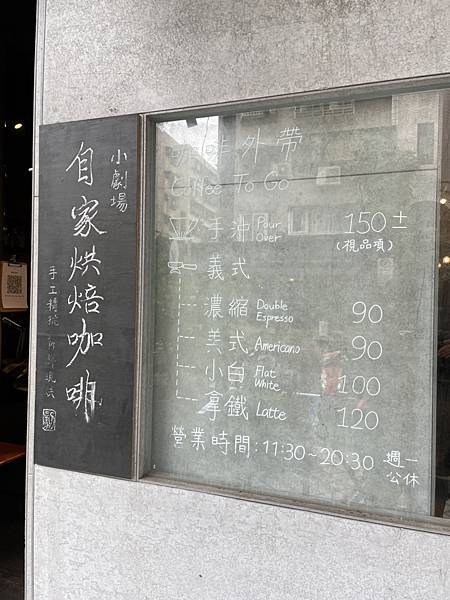 小劇場
自家烘焙咖啡
手工精挑
咖啡外帶
Coffee To Go
手沖 Pour Over 150±
(視品項)
義式
濃縮 Double Espresso 90
美式 Americano 90
小白 Flat White 100
拿鐵 Latte 120
營業時間:11:30~20:30 週一
公休